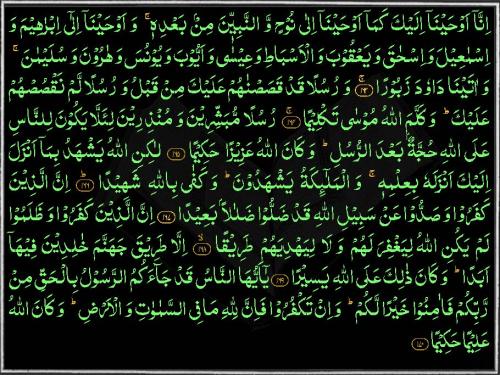 اِنَّاۤ اَوْحَيْنَاۤ اِلَيْكَ كَمَاۤ اَوْحَيْنَاۤ اِلٰى نُوْحٍ وَّ النَّبِيّٖنَ مِنْۢ بَعْدِهٖ ۚ وَ اَوْحَيْنَاۤ اِلٰۤى اِبْرٰهِيْمَ وَ
اِسْمٰعِيْلَ وَ اِسْحٰقَ وَ يَعْقُوْبَ وَ الْاَسْبَاطِ وَ عِيْسٰى وَ اَيُّوْبَ وَ يُوْنُسَ وَ هٰرُوْنَ وَ سُلَيْمٰنَ ۚ
وَ اٰتَيْنَا دَاوٗدَ زَبُوْرًا ۚ ﴿۱۶۳﴾ وَ رُسُلًا قَدْ قَصَصْنٰهُمْ عَلَيْكَ مِنْ قَبْلُ وَ رُسُلًا لَّمْ نَقْصُصْهُمْ
عَلَيْكَ ؕ وَ كَلَّمَ اللّٰهُ مُوْسٰى تَكْلِيْمًا ۚ ﴿۱۶۴﴾ رُسُلًا مُّبَشِّرِيْنَ وَ مُنْذِرِيْنَ لِئَلَّا يَكُوْنَ لِلنَّاسِ
عَلَى اللّٰهِ حُجَّةٌۢ بَعْدَ الرُّسُلِ ؕ وَ كَانَ اللّٰهُ عَزِيْزًا حَكِيْمًا ﴿۱۶۵﴾ لٰكِنِ اللّٰهُ يَشْهَدُ بِمَاۤ اَنْزَلَ
اِلَيْكَ اَنْزَلَهٗ بِعِلْمِهٖ ۚ وَ الْمَلٰٓئِكَةُ يَشْهَدُوْنَ ؕ وَ كَفٰى بِاللّٰهِ شَهِيْدًا ؕ ﴿۱۶۶﴾ اِنَّ الَّذِيْنَ
كَفَرُوْا وَ صَدُّوْا عَنْ سَبِيْلِ اللّٰهِ قَدْ ضَلُّوْا ضَلٰلًۢا بَعِيْدًا ﴿۱۶۷﴾ اِنَّ الَّذِيْنَ كَفَرُوْا وَ ظَلَمُوْا
لَمْ يَكُنِ اللّٰهُ لِيَغْفِرَ لَهُمْ وَ لَا لِيَهْدِيَهُمْ طَرِيْقًا ۙ ﴿۱۶۸﴾ اِلَّا طَرِيْقَ جَهَنَّمَ خٰلِدِيْنَ فِيْهَاۤ
اَبَدًا ؕ وَ كَانَ ذٰلِكَ عَلَى اللّٰهِ يَسِيْرًا ﴿۱۶۹﴾ يٰۤاَيُّهَا النَّاسُ قَدْ جَآءَكُمُ الرَّسُوْلُ بِالْحَقِّ مِنْ
رَّبِّكُمْ فَاٰمِنُوْا خَيْرًا لَّكُمْ ؕ وَ اِنْ تَكْفُرُوْا فَاِنَّ لِلّٰهِ مَا فِى السَّمٰوٰتِ وَ الْاَرْضِ ؕ وَ كَانَ اللّٰهُ
عَلِيْمًا حَكِيْمًا ﴿۱۷۰﴾